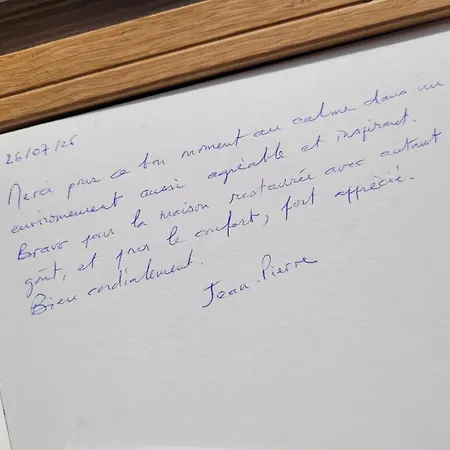 26/07/26
Merci pour ce bon moment au calme dans un
environnement aussi agréable et inspirant.
Bravo pour la maison restaurée avec autant
goût, et pour le confort, fort apprécié.
Bien cordialement.
Jean-Pierre